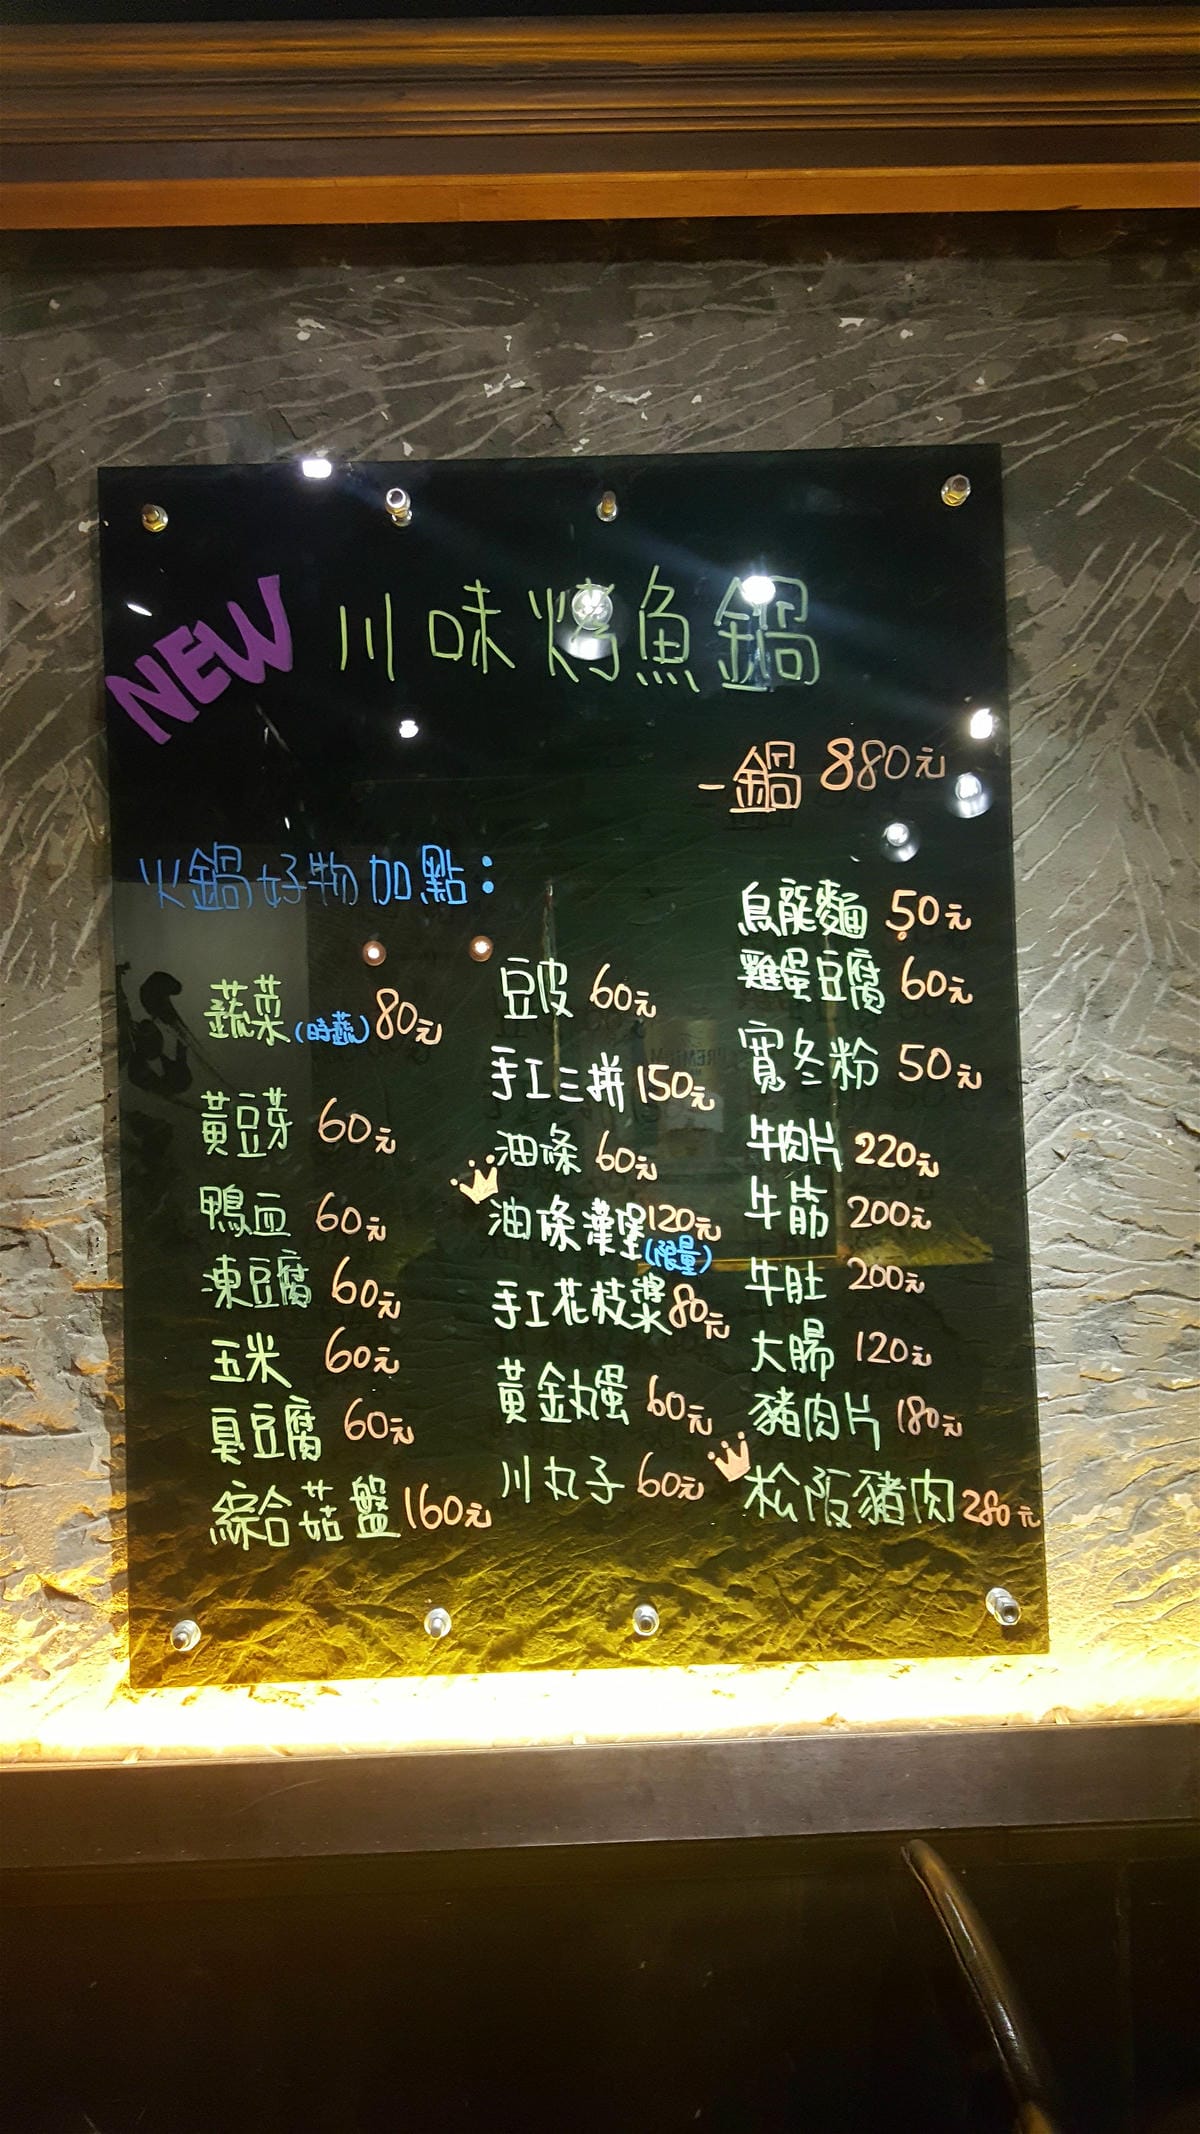 NEW 川味烤魚鍋
一鍋 880元
火鍋好物加點：
蔬菜(時蔬) 80元
黃豆芽 60元
鴨血 60元
凍豆腐 60元
玉米 60元
臭豆腐 60元
綜合菇盤 160元
豆皮 60元
手工三拼 150元
油條 60元
油條灌堡 120元
(限量)
手工花枝漿 80元
黃金丸蛋 60元
川丸子 60元
烏龍麵 50元
雞蛋豆腐 60元
寬冬粉 50元
牛肉片 220元
牛筋 200元
牛肚 200元
大腸 120元
豬肉片 180元
松阪豬肉 280元